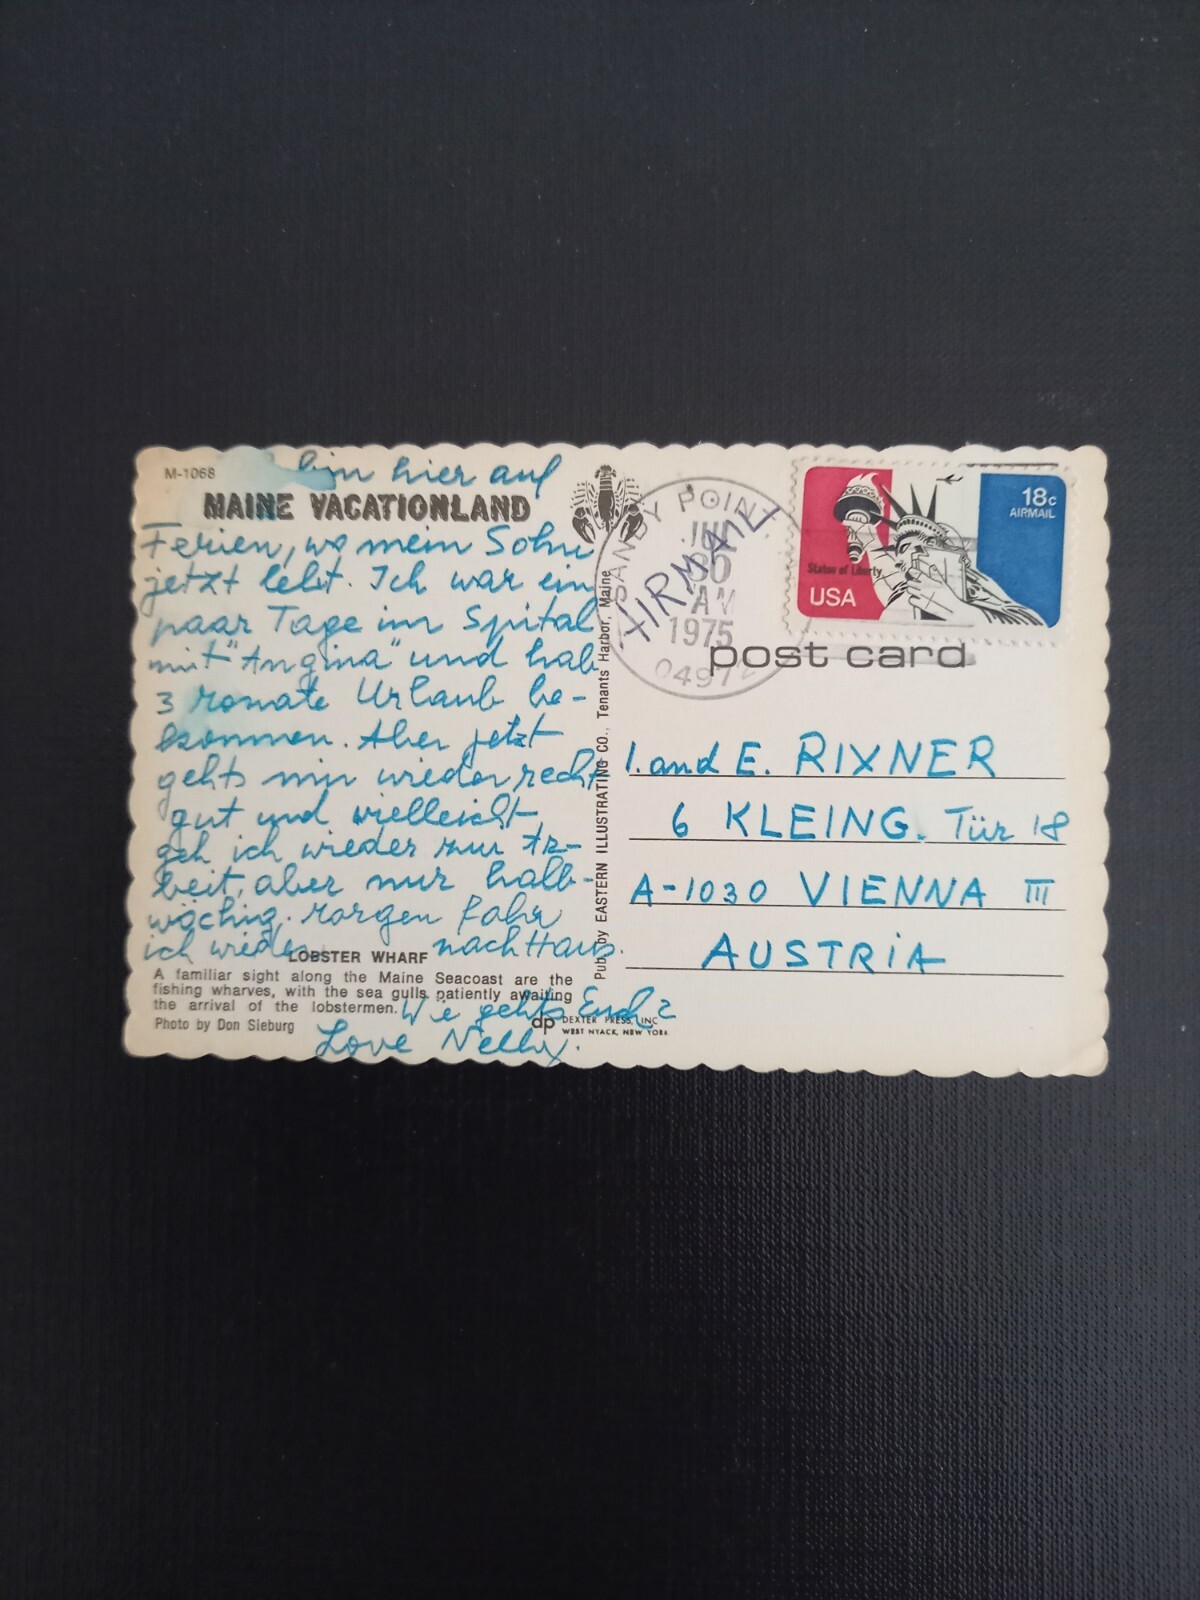 M-1068
bin hier auf
MAINE VACATIONLAND
Ferien, wo mein Sohn
jetzt lebt. Ich war ein
paar Tage im Spital
mit "Angina" und hab
3 Monate Urlaub be-
kommen. Aber jetzt
gehts mir wieder recht
gut und vielleicht
geh ich wieder zur Ar-
beit, aber nur halb-
wöchig. Morgen fahr
ich wieder nach Haus.
LOBSTER WHARF
A familiar sight along the Maine Seacoast are the
fishing wharves, with the sea gulls patiently awaiting
the arrival of the lobstermen.
Wie gehts Euch?
Photo by Don Sieburg
Love Nelly.
Pub. by EASTERN ILLUSTRATING CO., Tenants Harbor, Maine
dp DEXTER PRESS, INC.
WEST NYACK, NEW YORK
SANDY POINT
30
AM
1975
04972
AIRMAIL
18c
AIRMAIL
Statue of Liberty
USA
post card
I. and E. RIXNER
6 KLEING. Tür 18
A-1030 VIENNA III
AUSTRIA